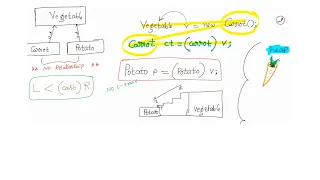 Vegetable
Vegetable v = new Carrot();
Carrot ct = (carrot) v;
Carrot Potato
** No Relationship **
Potato p = (Potato) v;
L < (cast) R
Potato
Vegetable